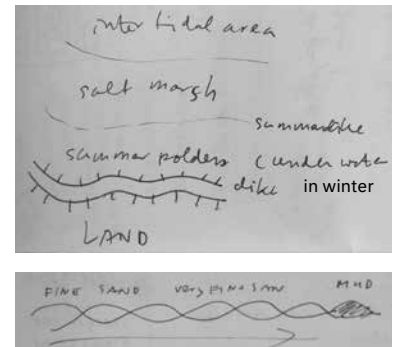 intertidal area
salt marsh
summerdike
summer polders (under water
dike in winter
LAND
FINE SAND very FINE SAN MUD